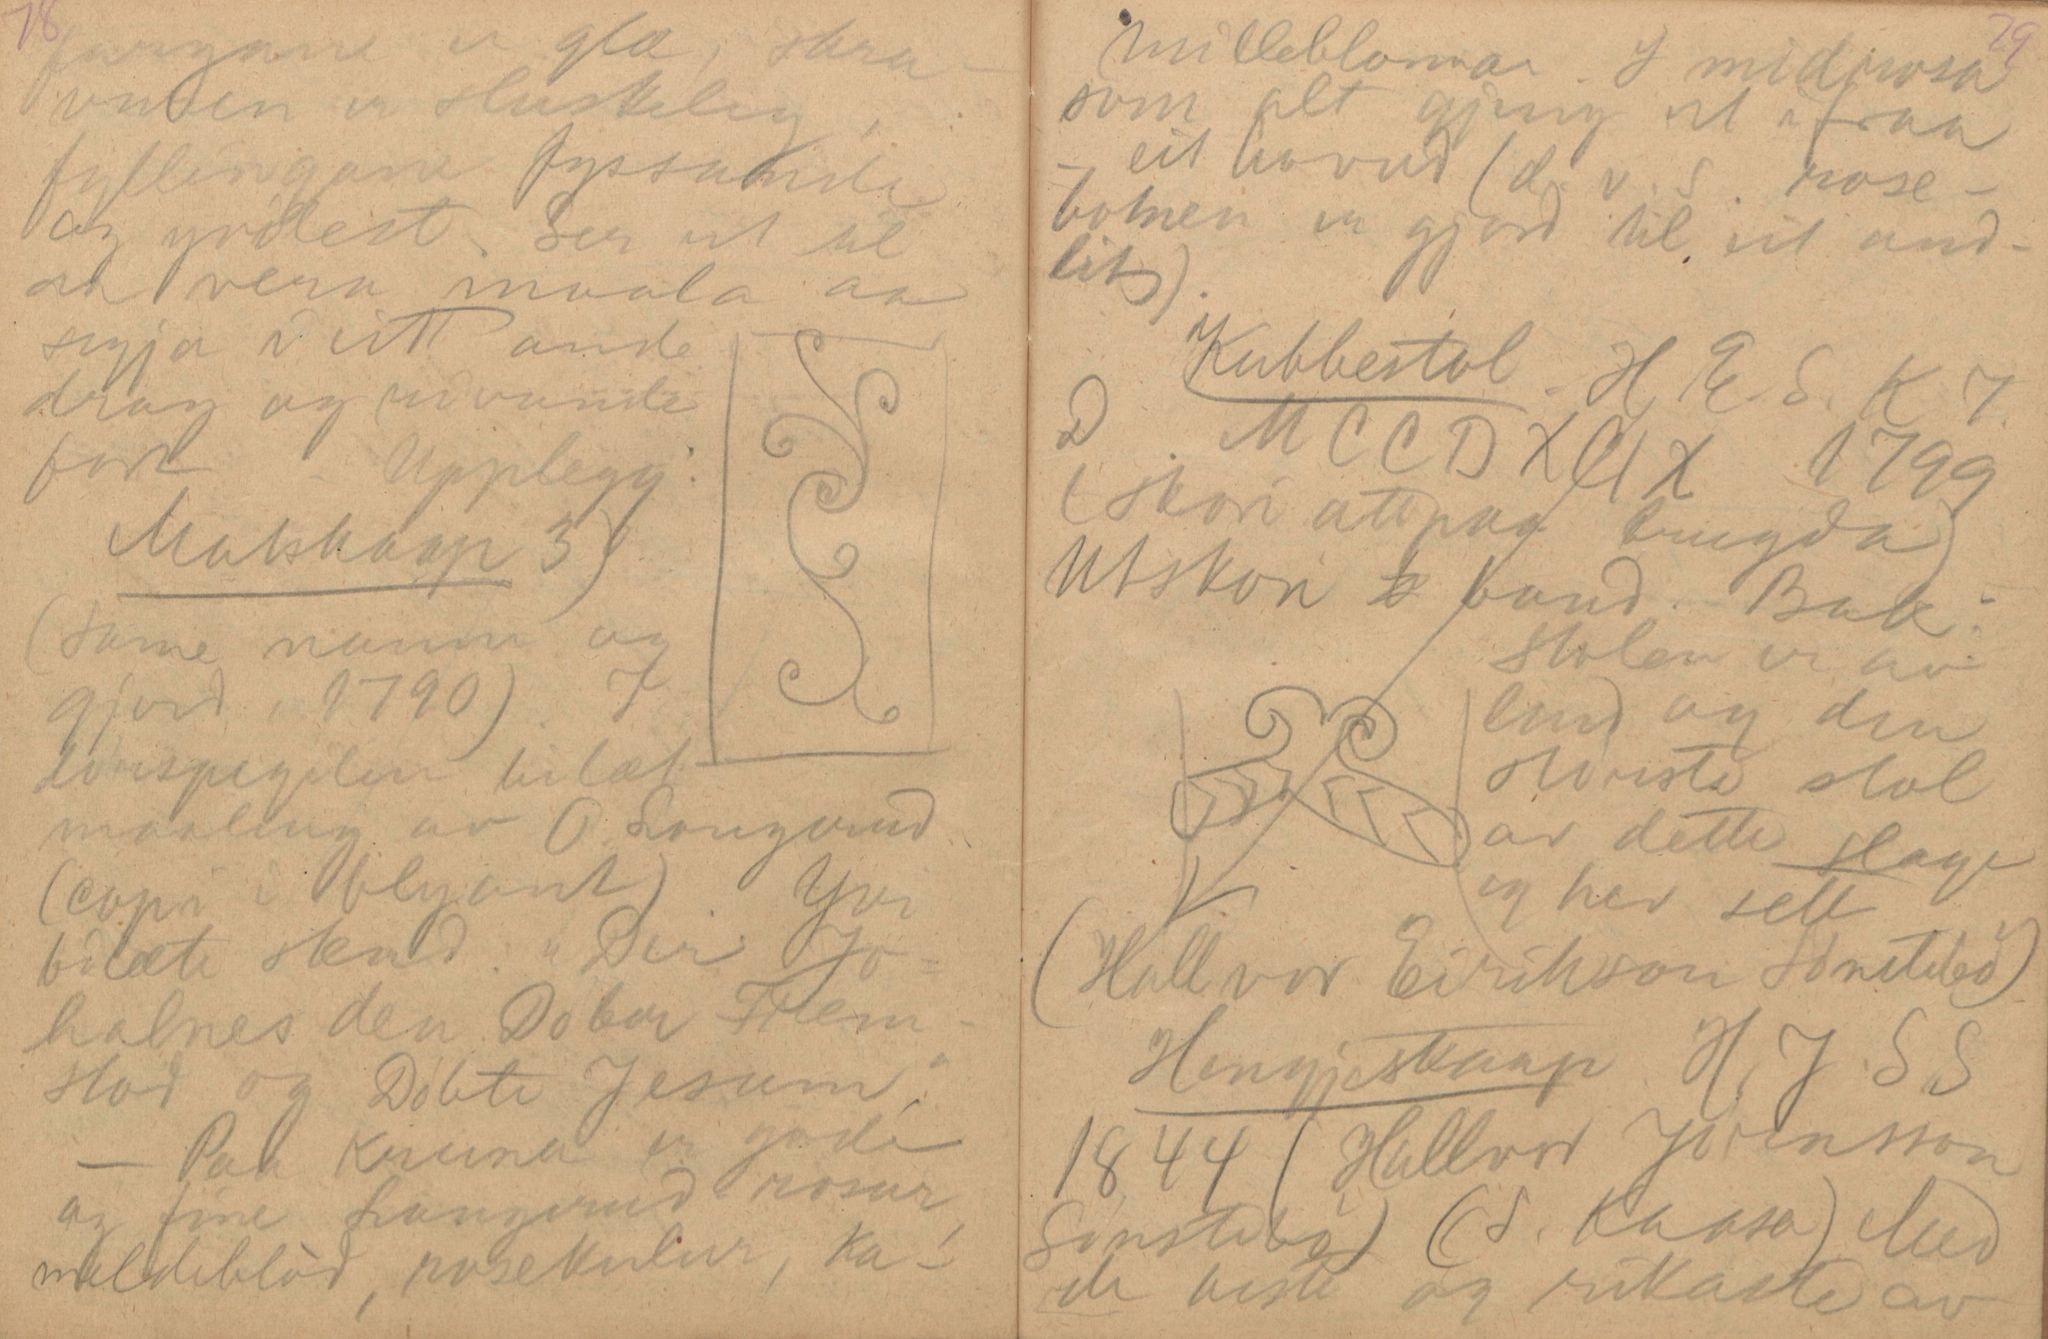 78
fargane er glæ, skra-
vuren er sluskeleg,
fyllingane fyssande
og yrdest. Ser ut til
aa vera maala aa
segja i eitt ande
drag og
fort. Upplegg:
Matskaap 3)
(same namn og
gjord 1790). I
dørspegelen bilæt
maaling av O. Langerud
(copi i blyant). Yvi
bilæte stend: "Der Jo=
halnes den Dober Frem-
stod og Döbte Jesum."
— Paa Kruna er gode
og fine Langerud rosur
meldeblöd, rosekulur, ka-
79
milleblomar. I midrosa
som alt gjeng ut ifraa
- eit hovud (d.v.s. rose-
botnen er gjord til eit and-
lits).
Kubbestol. H. E. S. K. T.
D. MCCDXCIX 1799
(skori attpaa brugda)
Utskori band. Bak:
stolen er av
lind og den
störste stol
av dette slage
eg hev sett
(Hallvor Eirikson Sönstebö)
Hengjeskaap H. J. S. S
1844 (Hallvor Jörensson
Sönstebö) (S. Kaasa) Med
de beste og rikaste av